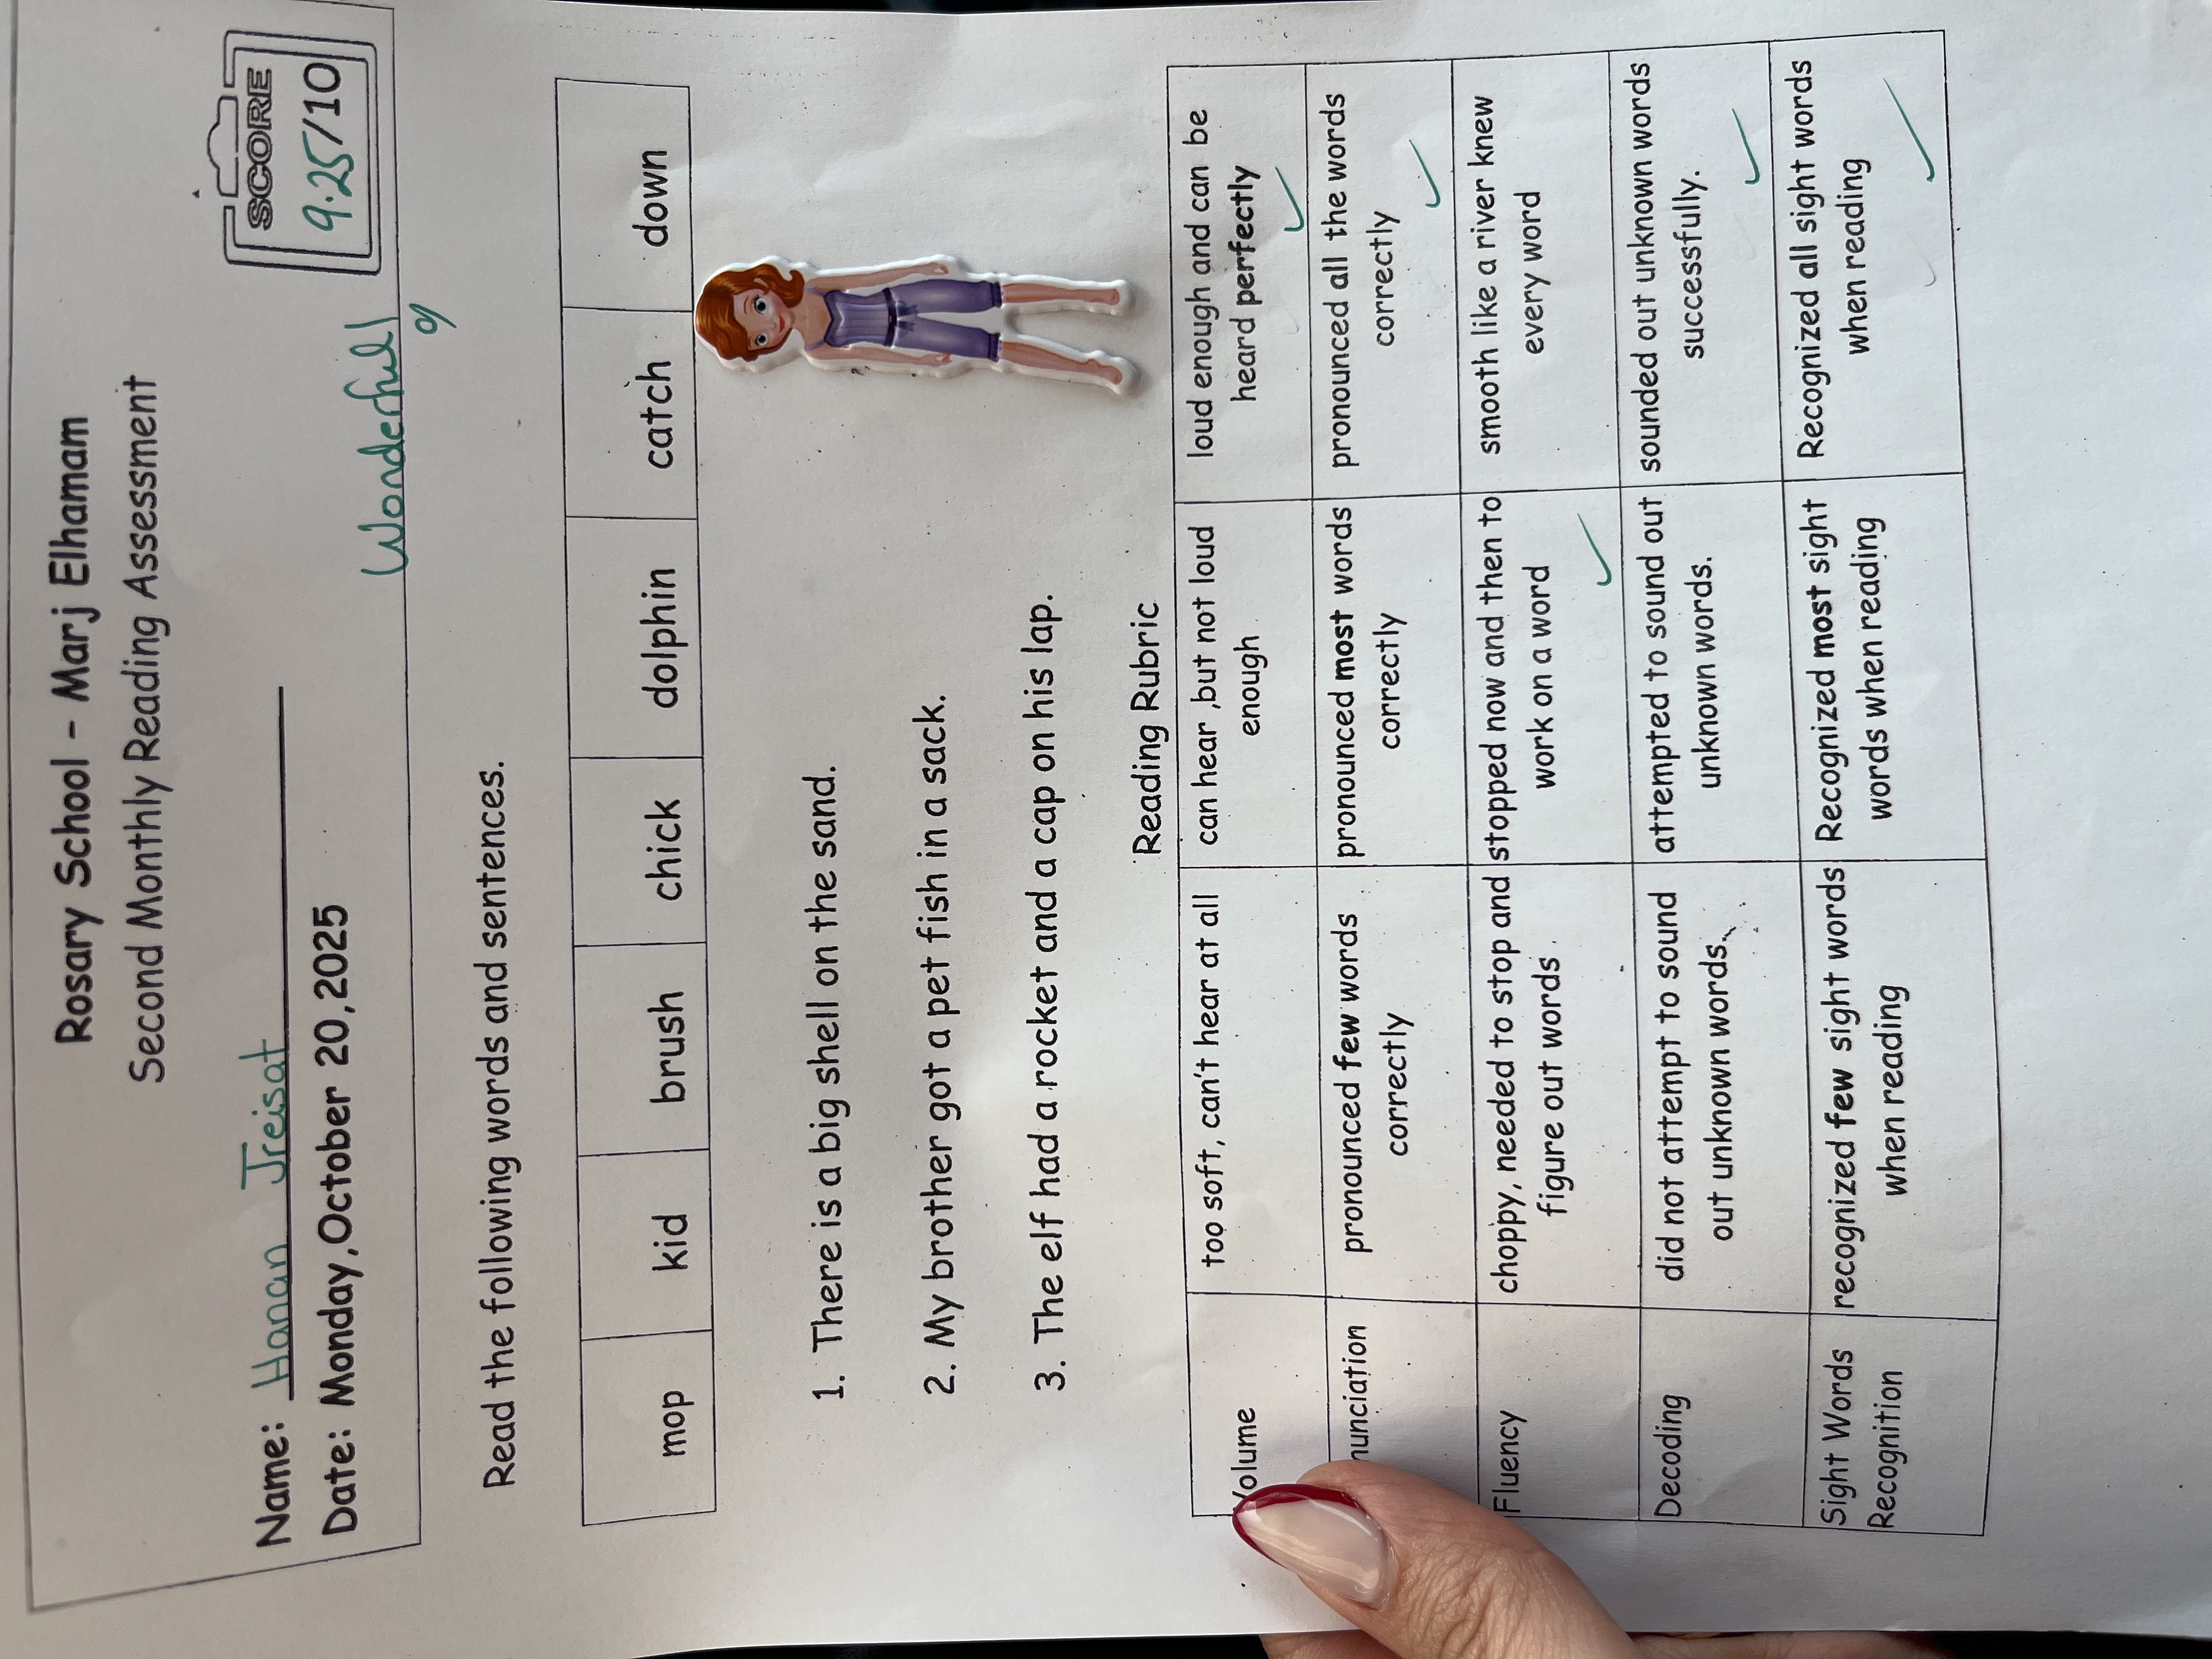 Rosary School - Marj Elhamam
Second Monthly Reading Assessment
SCORE
9.25/10
Name: Hanan Jreisat
Date: Monday,October 20,2025
Wonderful
Read the following words and sentences.
mop kid brush chick dolphin catch down
1. There is a big shell on the sand.
2. My brother got a pet fish in a sack.
3. The elf had a rocket and a cap on his lap.
Reading Rubric
Volume too soft, can't hear at all can hear ,but not loud enough loud enough and can be heard perfectly
nunciation pronounced few words correctly pronounced most words correctly pronounced all the words correctly
Fluency choppy, needed to stop and figure out words stopped now and then to work on a word smooth like a river knew every word
Decoding did not attempt to sound out unknown words. attempted to sound out unknown words. sounded out unknown words successfully.
Sight Words Recognition recognized few sight words when reading Recognized most sight words when reading Recognized all sight words when reading